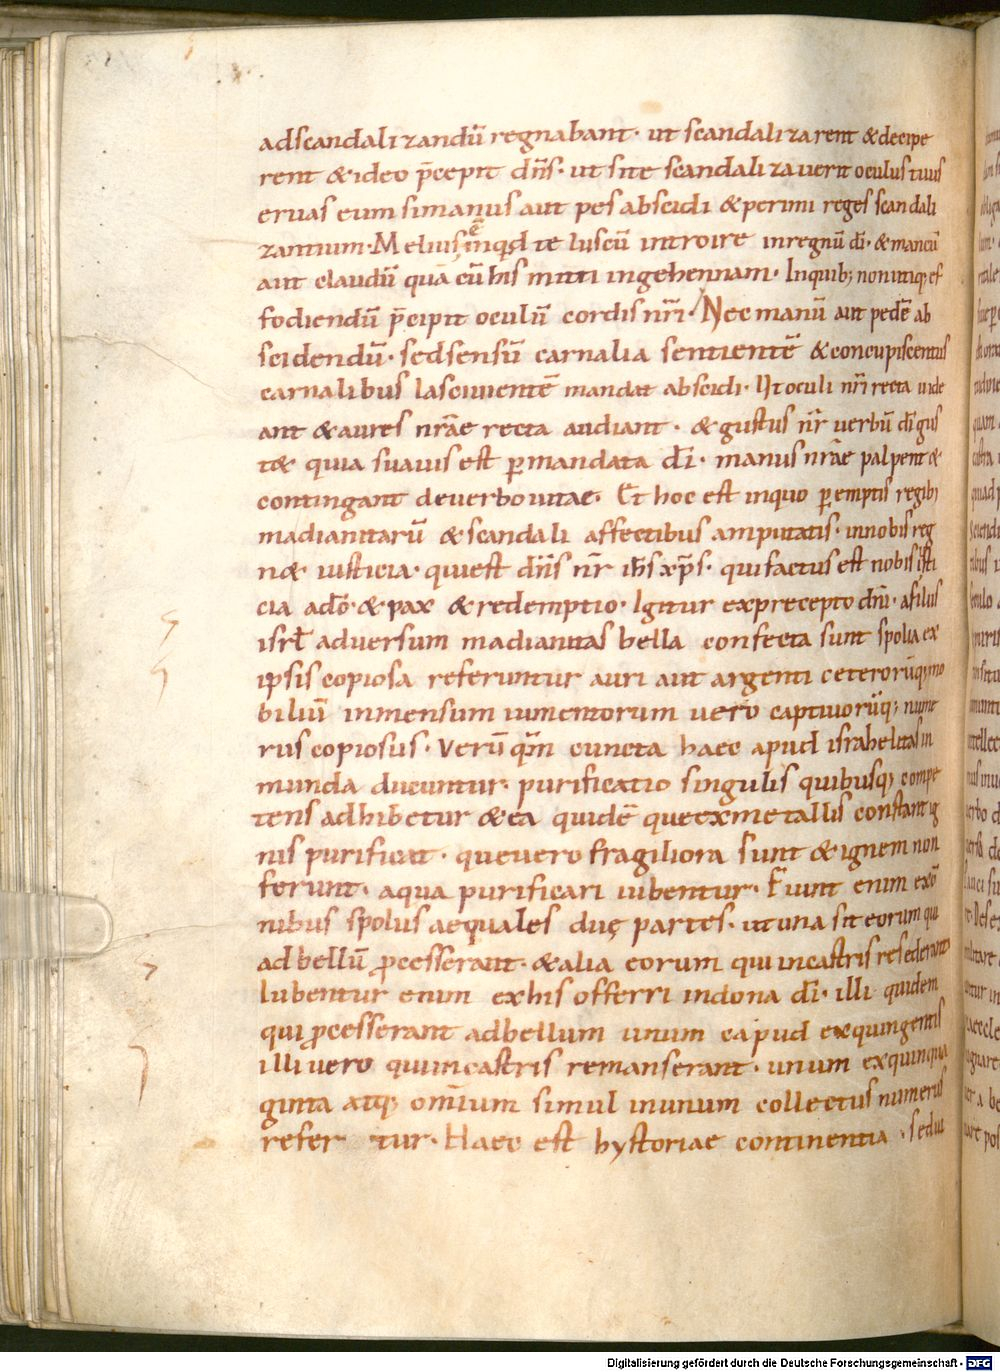 adscandalizandū regnabant· ut scandalizarent & decipe
rent & ideo p̄cepit dn̄s· ut si te scandalizaverit oculus tuus
eruas eum si manus aut pes abscidi & perimi reges scandali
zantium· Melius ē inquid te luscū introire in regnū dī· & mancū
aut claudū quā cū his mitti in gehennam· In quib; non utiq; ef
fodiendū p̄cipit oculū cordis nr̄i· Nec manū aut pedē ab
scidendū· sed sensū carnalia sentientē & concupiscentiis
carnalibus lascivientē mandat abscidi· Ut oculi nr̄i recta vide
ant & aures nr̄ae recta audiant· & gustus nr̄ verbū dī gus
t& quia suavis est p̱ mandata dī· manus nr̄ae palpent &
contingant de verbo vitae· Et hoc est in quo p̱emptis regib;
madianitarū & scandali affectibus amputatis· in nobis reg
n& iusticia· qui est dn̄s nr̄ ih̄s xp̄s· qui factus est nobis iusti
cia a dō· & pax & redemptio· Igitur ex precepto dn̄i· a filiis
isrl̄ adversum madianitas bella confecta sunt spolia ex
ipsis copiosa referuntur auri aut argenti ceterorūq; mo
biliū inmensum iumentorum vero captivorūq; nume
rus copiosus· Verū qm̄ cuncta haec apud israhelitas in
munda ducuntur· purificatio singulis quibusq; compe
tens adhibetur & ea quidē que ex metallis constant ig
nis purificat· que vero fragiliora sunt & ignem non
ferunt· aqua purificari iubentur· Fiunt enim ex ō
nibus spoliis aequales duę partes· ut una sit eorum qui
ad bellū p̱cesserant· & alia eorum qui in castris resederant·
Iubentur enim ex his offerri in dona dī· illi quidem
qui p̱cesserant ad bellum unum capud ex quingentis
illi vero qui in castris remanserant· unum ex quinqua
ginta atq; om̄ium simul in unum collectus numerus
refer tur· Haec est hystoriae continentia· sed ui
Digitalisierung gefördert durch die Deutsche Forschungsgemeinschaft - DFG